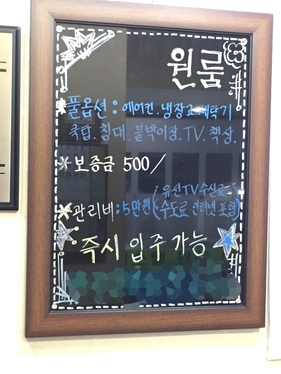 원룸
*풀옵션 : 에어컨. 냉장고. 세탁기
쿡탑. 침대. 붙박이장. TV. 책상.
*보증금 500/
/유선TV수신료
*관리비 : 5만원 (수도료 인터넷 포함)
즉시 입주 가능